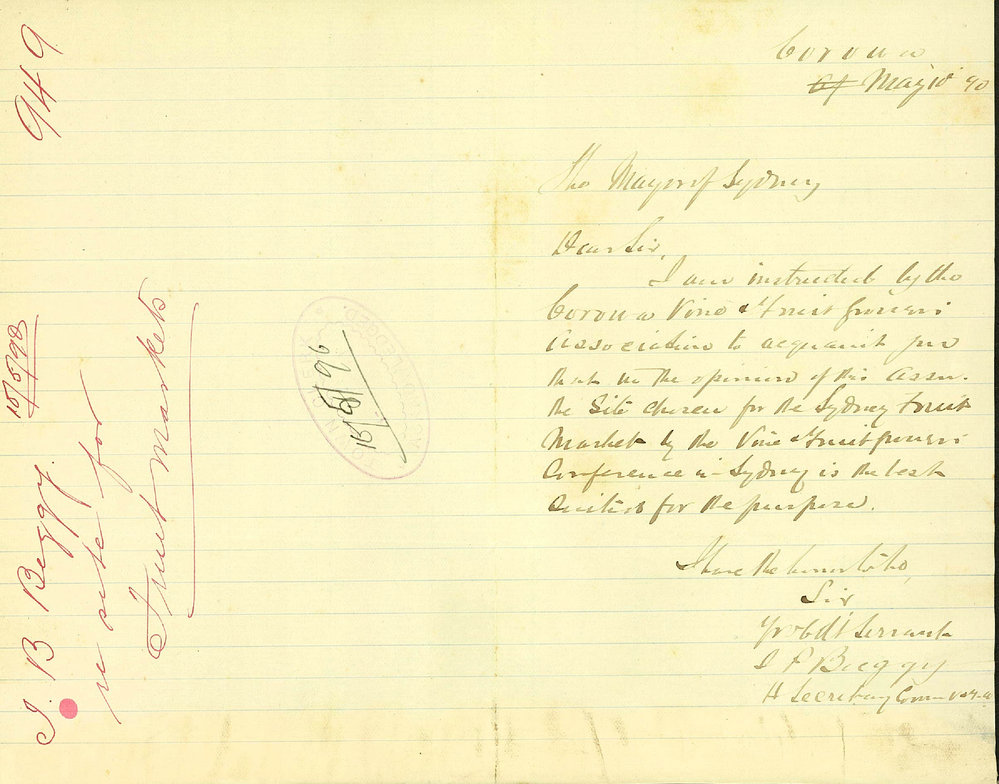 949
15/5/90
J. B. Beggy.
re site for
Fruit Markets
TOWN CLERK
15/5/90
Corowa
May 10 90
The Mayor of Sydney
Dear Sir,
I am instructed by the
Corowa Vine & Fruit growers
Association to acquaint you
that in the opinion of this Assn.
the site chosen for the Sydney Fruit
Market by the Vine & Fruit growers
Conference in Sydney is the best
suited for the purpose.
I have the honor to be,
Sir
Yr obdt Servant
J P Beggy
H Secretary Corowa